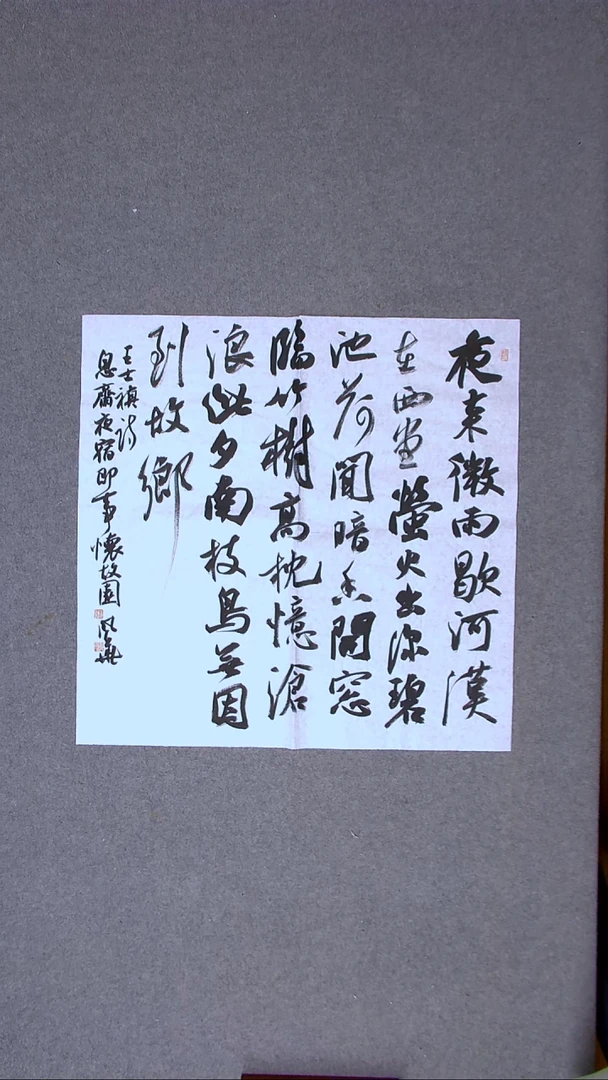 夜来微雨歇河漢
在西堂螢火出深碧
池荷聞暗香開窓
臨竹樹高枕憶滄
浪此夕南枝鳥無因
到故鄉
王士禛詩
息齋夜宿即事懷故園